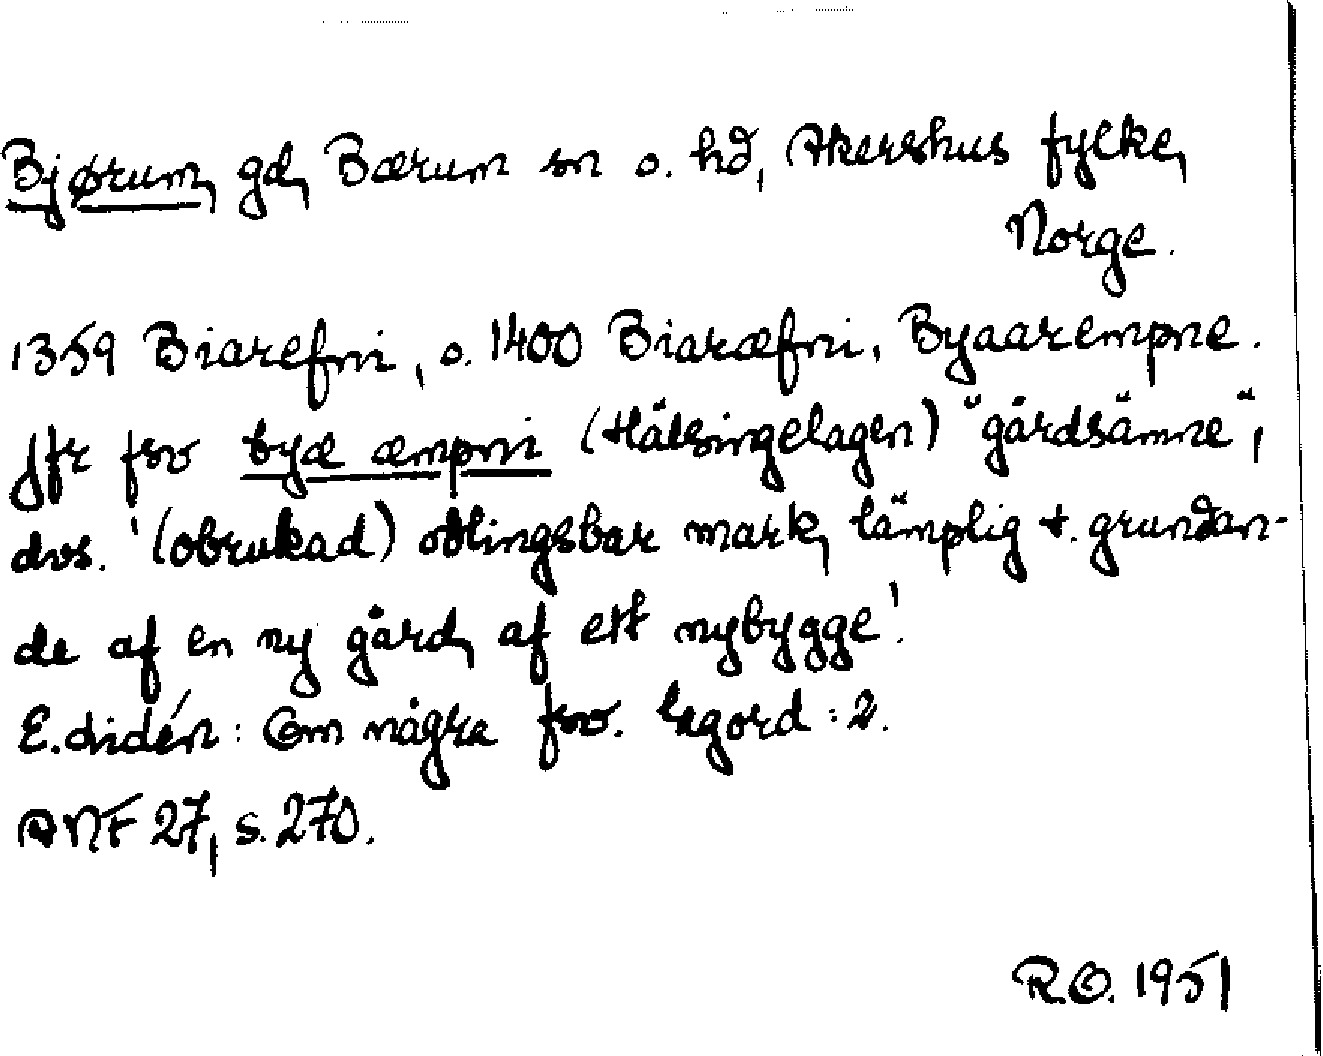 Bjørum, gd, Bærum sn o. hd, Akershus fylke,
Norge.
1359 Biarefni, o. 1400 Biaræfni, Byaarempne.
Jfr fsv byæ æmpni (Hälsingelagen) "gårdsämne",
dvs. '(obrukad) odlingsbar mark, lämplig t. grundan-
de af en ny gård, af ett nybygge'.
E. Lidén: Om några fsv. lagord: 2.
ANF 27, s. 270.
R.O. 1951